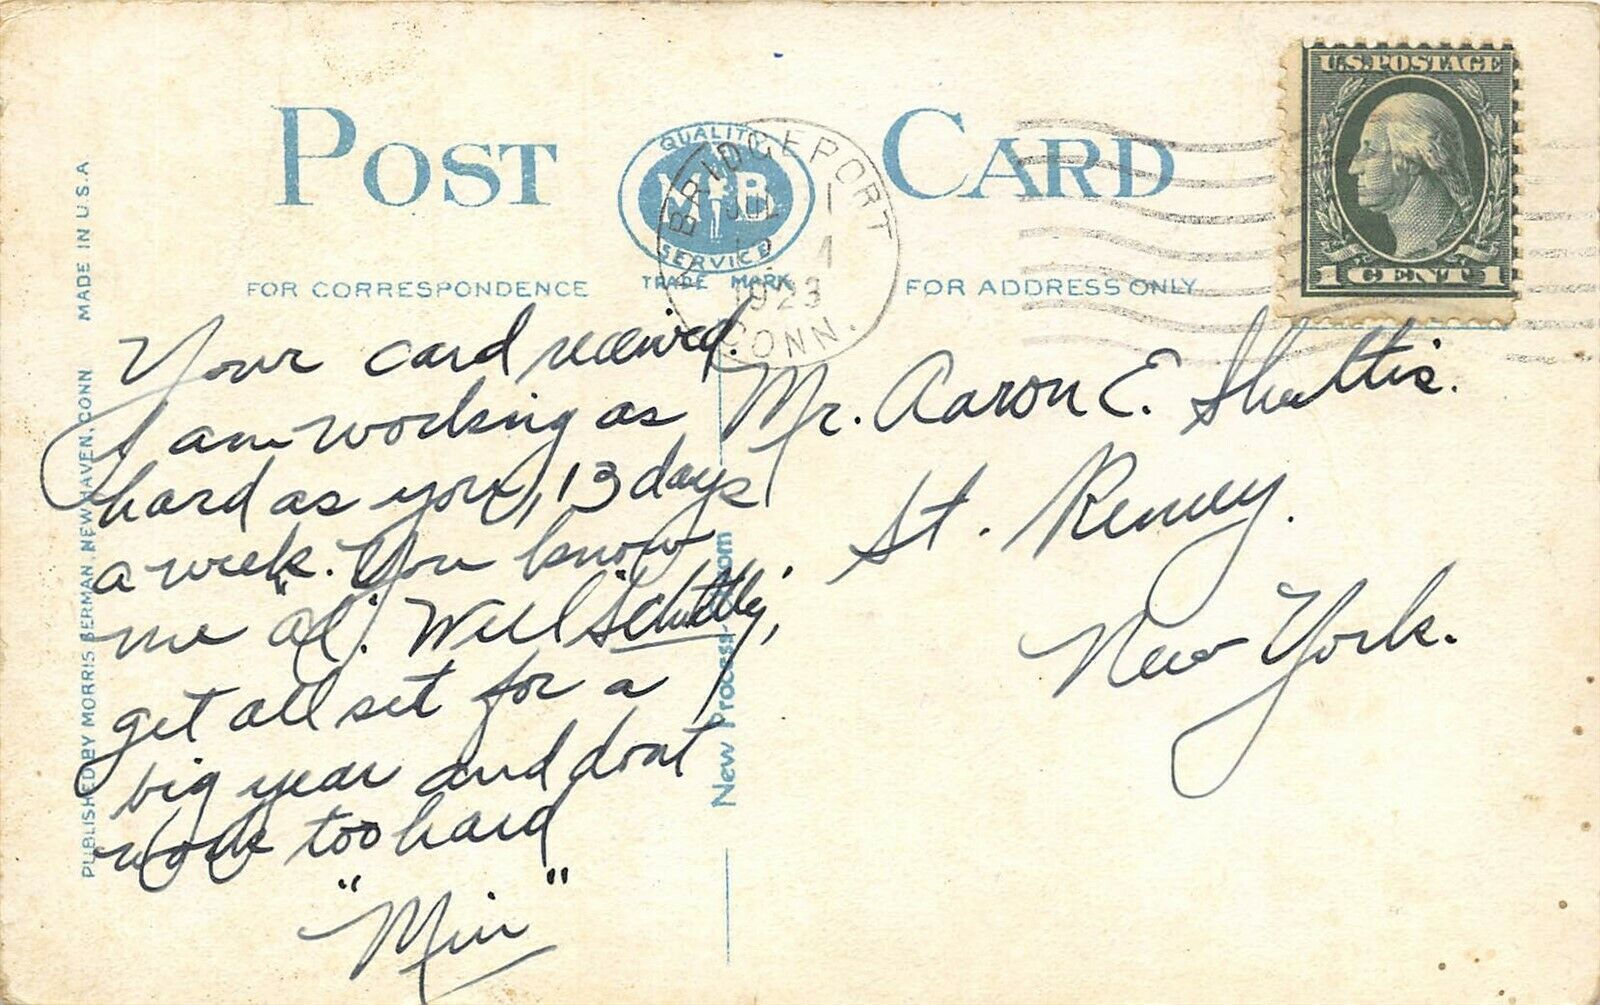 POST CARD
QUALITY
M B
SERVICE
TRADE MARK
BRIDGEPORT
JUL
1
1923
CONN.
U.S. POSTAGE
1 CENT 1
FOR CORRESPONDENCE
FOR ADDRESS ONLY
Your card received.
I am working as
hard as you, 13 days
a week. You know
me "Al". Well
get all set for a
big year and dont
work too hard
"Min"
Mr. Aaron E. Shultis.
St. Remy.
New York.
PUBLISHED BY MORRIS BERMAN, NEW HAVEN, CONN MADE IN U.S.A
New Process